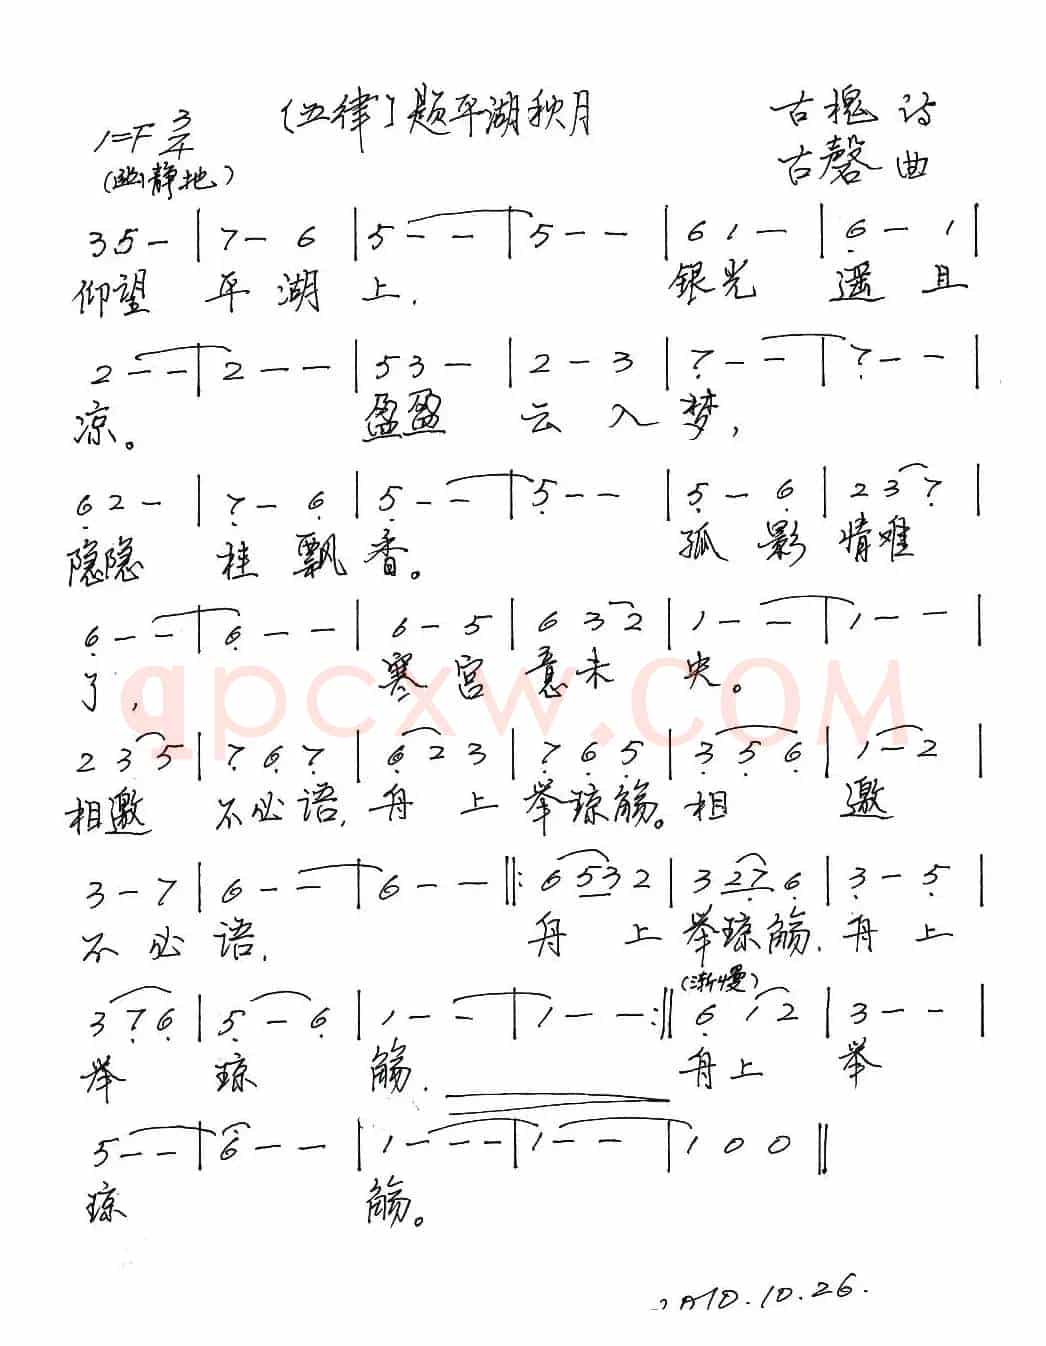 [五律]题平湖秋月
古槐 诗
1=F 3/4
古磬 曲
(幽静地)
3 5 - | 7 - 6 | 5 - - | 5 - - | 6 1 - | 6 - 1 |
仰望 平湖上, 银光 遥且
2 - - | 2 - - | 5 3 - | 2 - 3 | 7 - - | 7 - - |
凉。 盈盈 云入梦,
6 2 - | 7 - 6 | 5 - - | 5 - - | 5 - 6 | 2 3 7 |
隐隐 桂飘香。 孤影情难
6 - - | 6 - - | 6 - 5 | 6 3 2 | 1 - - | 1 - - |
了, 寒宫意未央。
qpcxw.COM
2 3 5 | 7 6 7 | 6 2 3 | 7 6 5 | 3 5 6 | 1 - 2 |
相邀 不必语, 舟上 举琼觞。相 邀
3 - 7 | 6 - - | 6 - - ||: 6 5 3 2 | 3 2 7 6 | 3 - 5 |
不必语, 舟上举琼觞, 舟上
(渐慢)
3 7 6 | 5 - 6 | 1 - - | 1 - - :|| 6 1 2 | 3 - - |
举 琼 觞. 舟上 举
5 - - | 6 - - | 1 - - - | 1 - - - | 1 0 0 ||
琼 觞。
10.10.26.